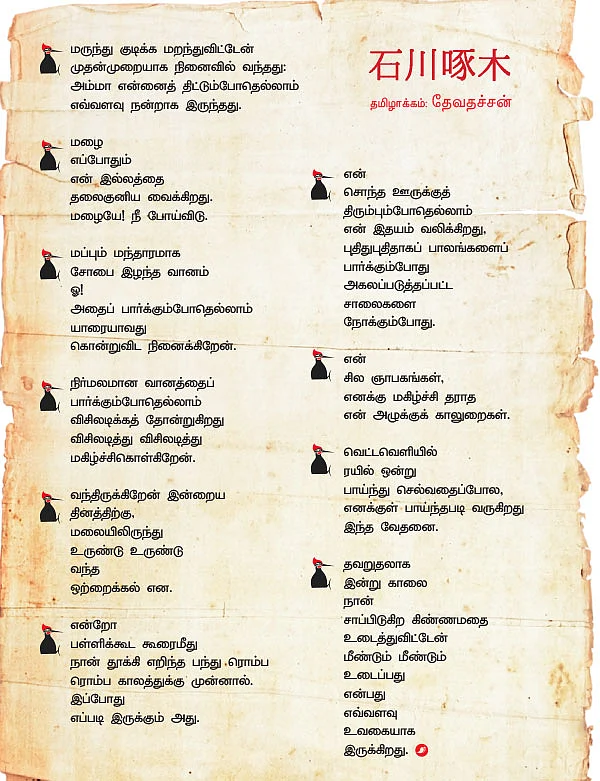 石川啄木
தமிழாக்கம்: தேவதச்சன்
மருந்து குடிக்க மறந்துவிட்டேன்
முதன்முறையாக நினைவில் வந்தது:
அம்மா என்னைத் திட்டும்போதெல்லாம்
எவ்வளவு நன்றாக இருந்தது.
மழை
எப்போதும்
என் இல்லத்தை
தலைகுனிய வைக்கிறது.
மழையே! நீ போய்விடு.
மப்பும் மந்தாரமாக
சோபை இழந்த வானம்
ஓ!
அதைப் பார்க்கும்போதெல்லாம்
யாரையாவது
கொன்றுவிட நினைக்கிறேன்.
நிர்மலமான வானத்தைப்
பார்க்கும்போதெல்லாம்
விசிலடிக்கத் தோன்றுகிறது
விசிலடித்து விசிலடித்து
மகிழ்ச்சிகொள்கிறேன்.
வந்திருக்கிறேன் இன்றைய
தினத்திற்கு,
மலையிலிருந்து
உருண்டு உருண்டு
வந்த
ஒற்றைக்கல் என.
என்றோ
பள்ளிக்கூட கூரைமீது
நான் தூக்கி எறிந்த பந்து ரொம்ப
ரொம்ப காலத்துக்கு முன்னால்.
இப்போது
எப்படி இருக்கும் அது.
என்
சொந்த ஊருக்குத்
திரும்பும்போதெல்லாம்
என் இதயம் வலிக்கிறது,
புதிதுபுதிதாகப் பாலங்களைப்
பார்க்கும்போது
அகலப்படுத்தப்பட்ட
சாலைகளை
நோக்கும்போது.
என்
சில ஞாபகங்கள்,
எனக்கு மகிழ்ச்சி தராத
என் அழுக்குக் காலுறைகள்.
வெட்டவெளியில்
ரயில் ஒன்று
பாய்ந்து செல்வதைப்போல,
எனக்குள் பாய்ந்தபடி வருகிறது
இந்த வேதனை.
தவறுதலாக
இன்று காலை
நான்
சாப்பிடுகிற கிண்ணமதை
உடைத்துவிட்டேன்
மீண்டும் மீண்டும்
உடைப்பது
என்பது
எவ்வளவு
உவகையாக
இருக்கிறது.